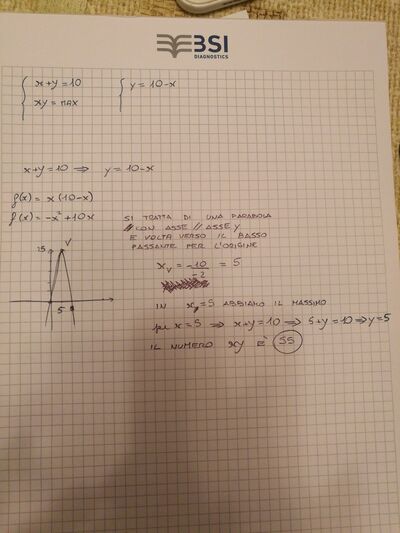 BSI
DIAGNOSTICS
x+y=10
xy = MAX
y = 10-x
x+y=10 ⇒ y = 10-x
f(x) = x(10-x)
f(x) = -x²+10x
SI TRATTA DI UNA PARABOLA
CON ASSE // ASSE y
E VOLTA VERSO IL BASSO
PASSANTE PER L'ORIGINE
25
V
5
x_V = -10/-2 = 5
IN x_V=5 ABBIAMO IL MASSIMO
per x=5 ⇒ x+y=10 ⇒ 5+y=10 ⇒ y=5
IL NUMERO xy È 55